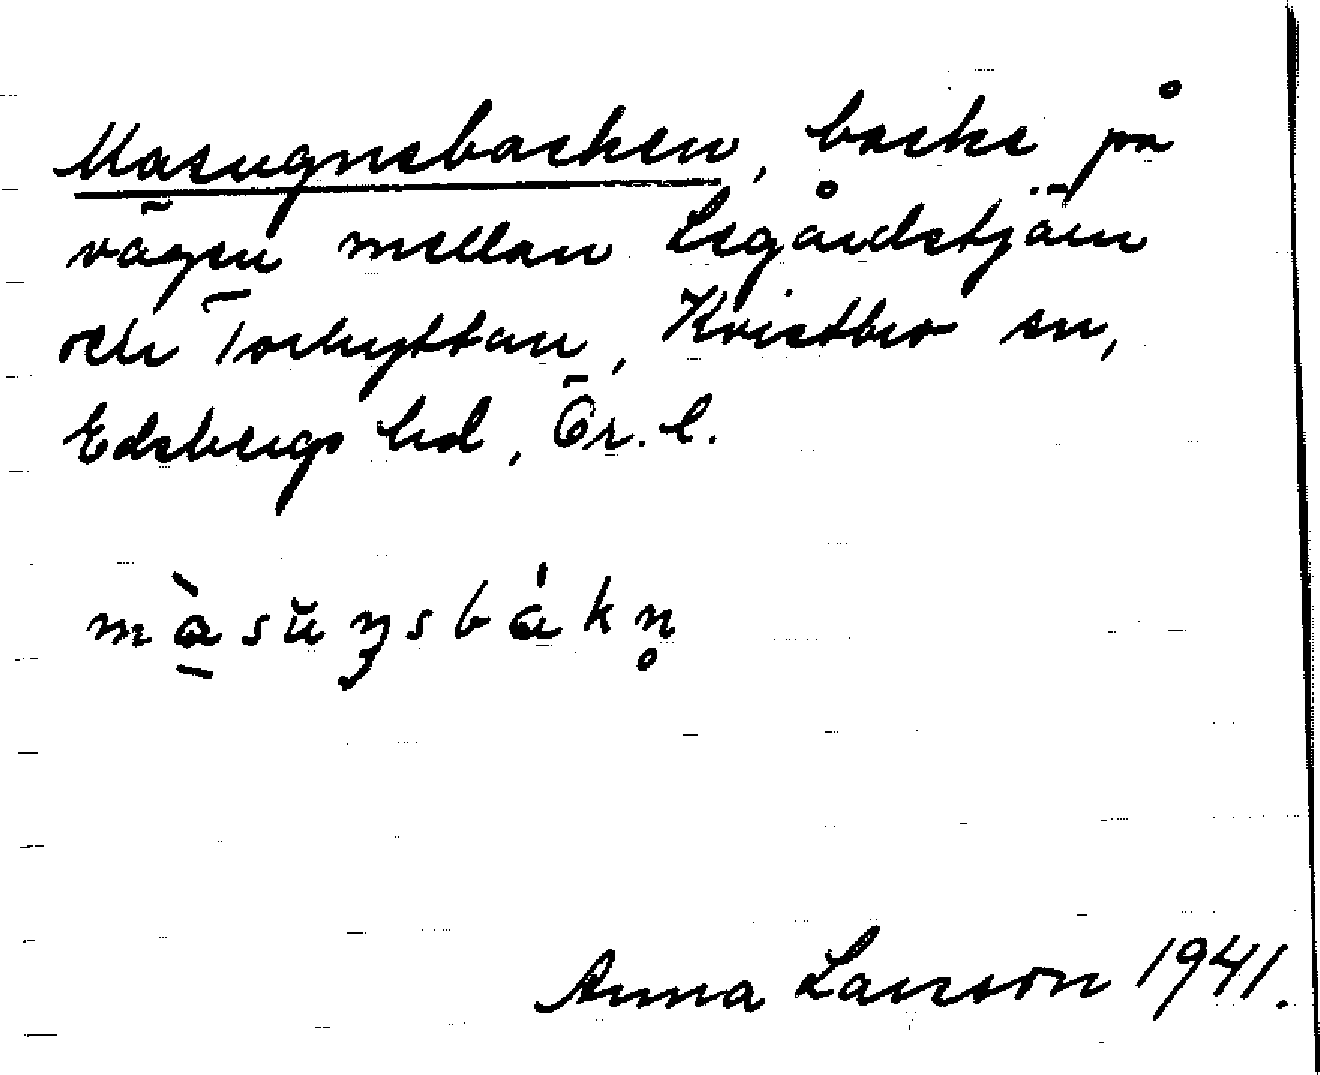 Masugnsbacken, backe på
vägen mellan Legårdstjärn
och Torhyttan, Kvistbro sn,
Edsbergs hd, Ör. l.
màsŭŋsbákn̥
Anna Larsson 1941.